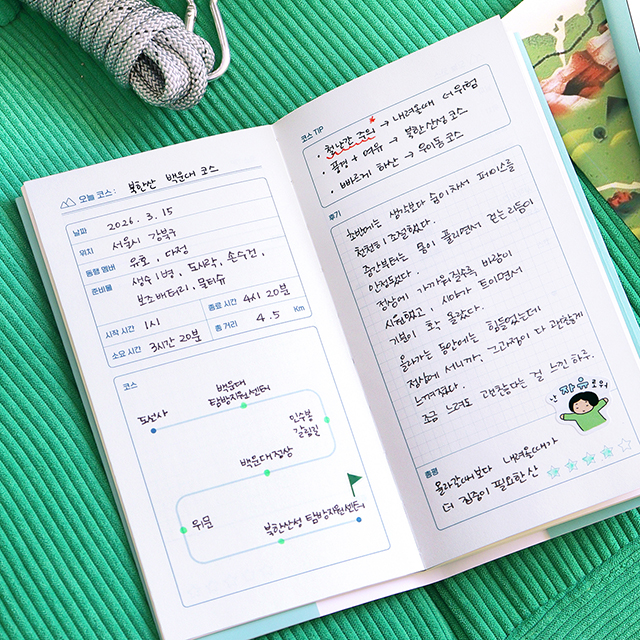 오늘 코스 : 북한산 백운대 코스
날짜 2026. 3. 15
위치 서울시 강북구
동행 멤버 유호, 다정
준비물 생수 1병, 도시락, 손수건,
보조배터리, 물티슈
시작 시간 1시 종료 시간 4시 20분
소요 시간 3시간 20분 총 거리 4.5 Km
코스
백운대
탐방지원센터
도선사
인수봉
갈림길
백운대정상
위문
북한산성 탐방지원센터
코스 TIP
· 철난간 주의 → 내려올때 더위험
· 풍경 + 여유 → 북한산성 코스
· 빠르게 하산 → 우이동 코스
후기
초반에는 생각보다 숨이차서 페이스를
천천히 조절했다.
중간부터는 몸이 풀리면서 걷는리듬이
안정됐다.
정상에 가까워질수록 바람이
시원했고, 시야가 트이면서
기분이 확 올랐다.
올라가는 동안에는 힘들었는데
정상에 서니까, 그과정이 다 괜찮게
느껴졌다.
조금 느려도 괜찮다는 걸 느낀 하루.
자유
총평
올라갈때보다 내려올때가
더 집중이 필요한산